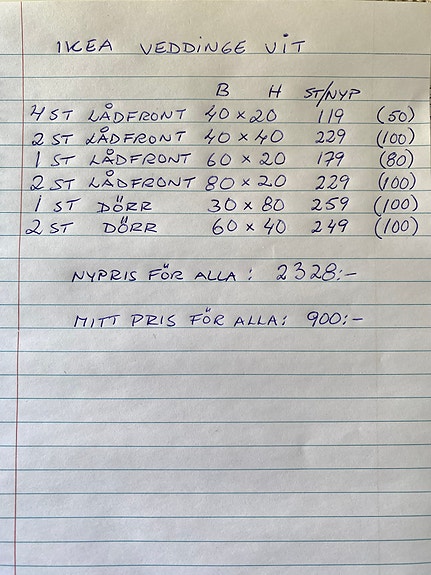 IKEA VEDDINGE VIT
B H ST/NYP
4 ST LÅDFRONT 40 × 20 119 (50)
2 ST LÅDFRONT 40 × 40 229 (100)
1 ST LÅDFRONT 60 × 20 179 (80)
2 ST LÅDFRONT 80 × 20 229 (100)
1 ST DÖRR 30 × 80 259 (100)
2 ST DÖRR 60 × 40 249 (100)
NYPRIS FÖR ALLA: 2328:-
MITT PRIS FÖR ALLA: 900:-